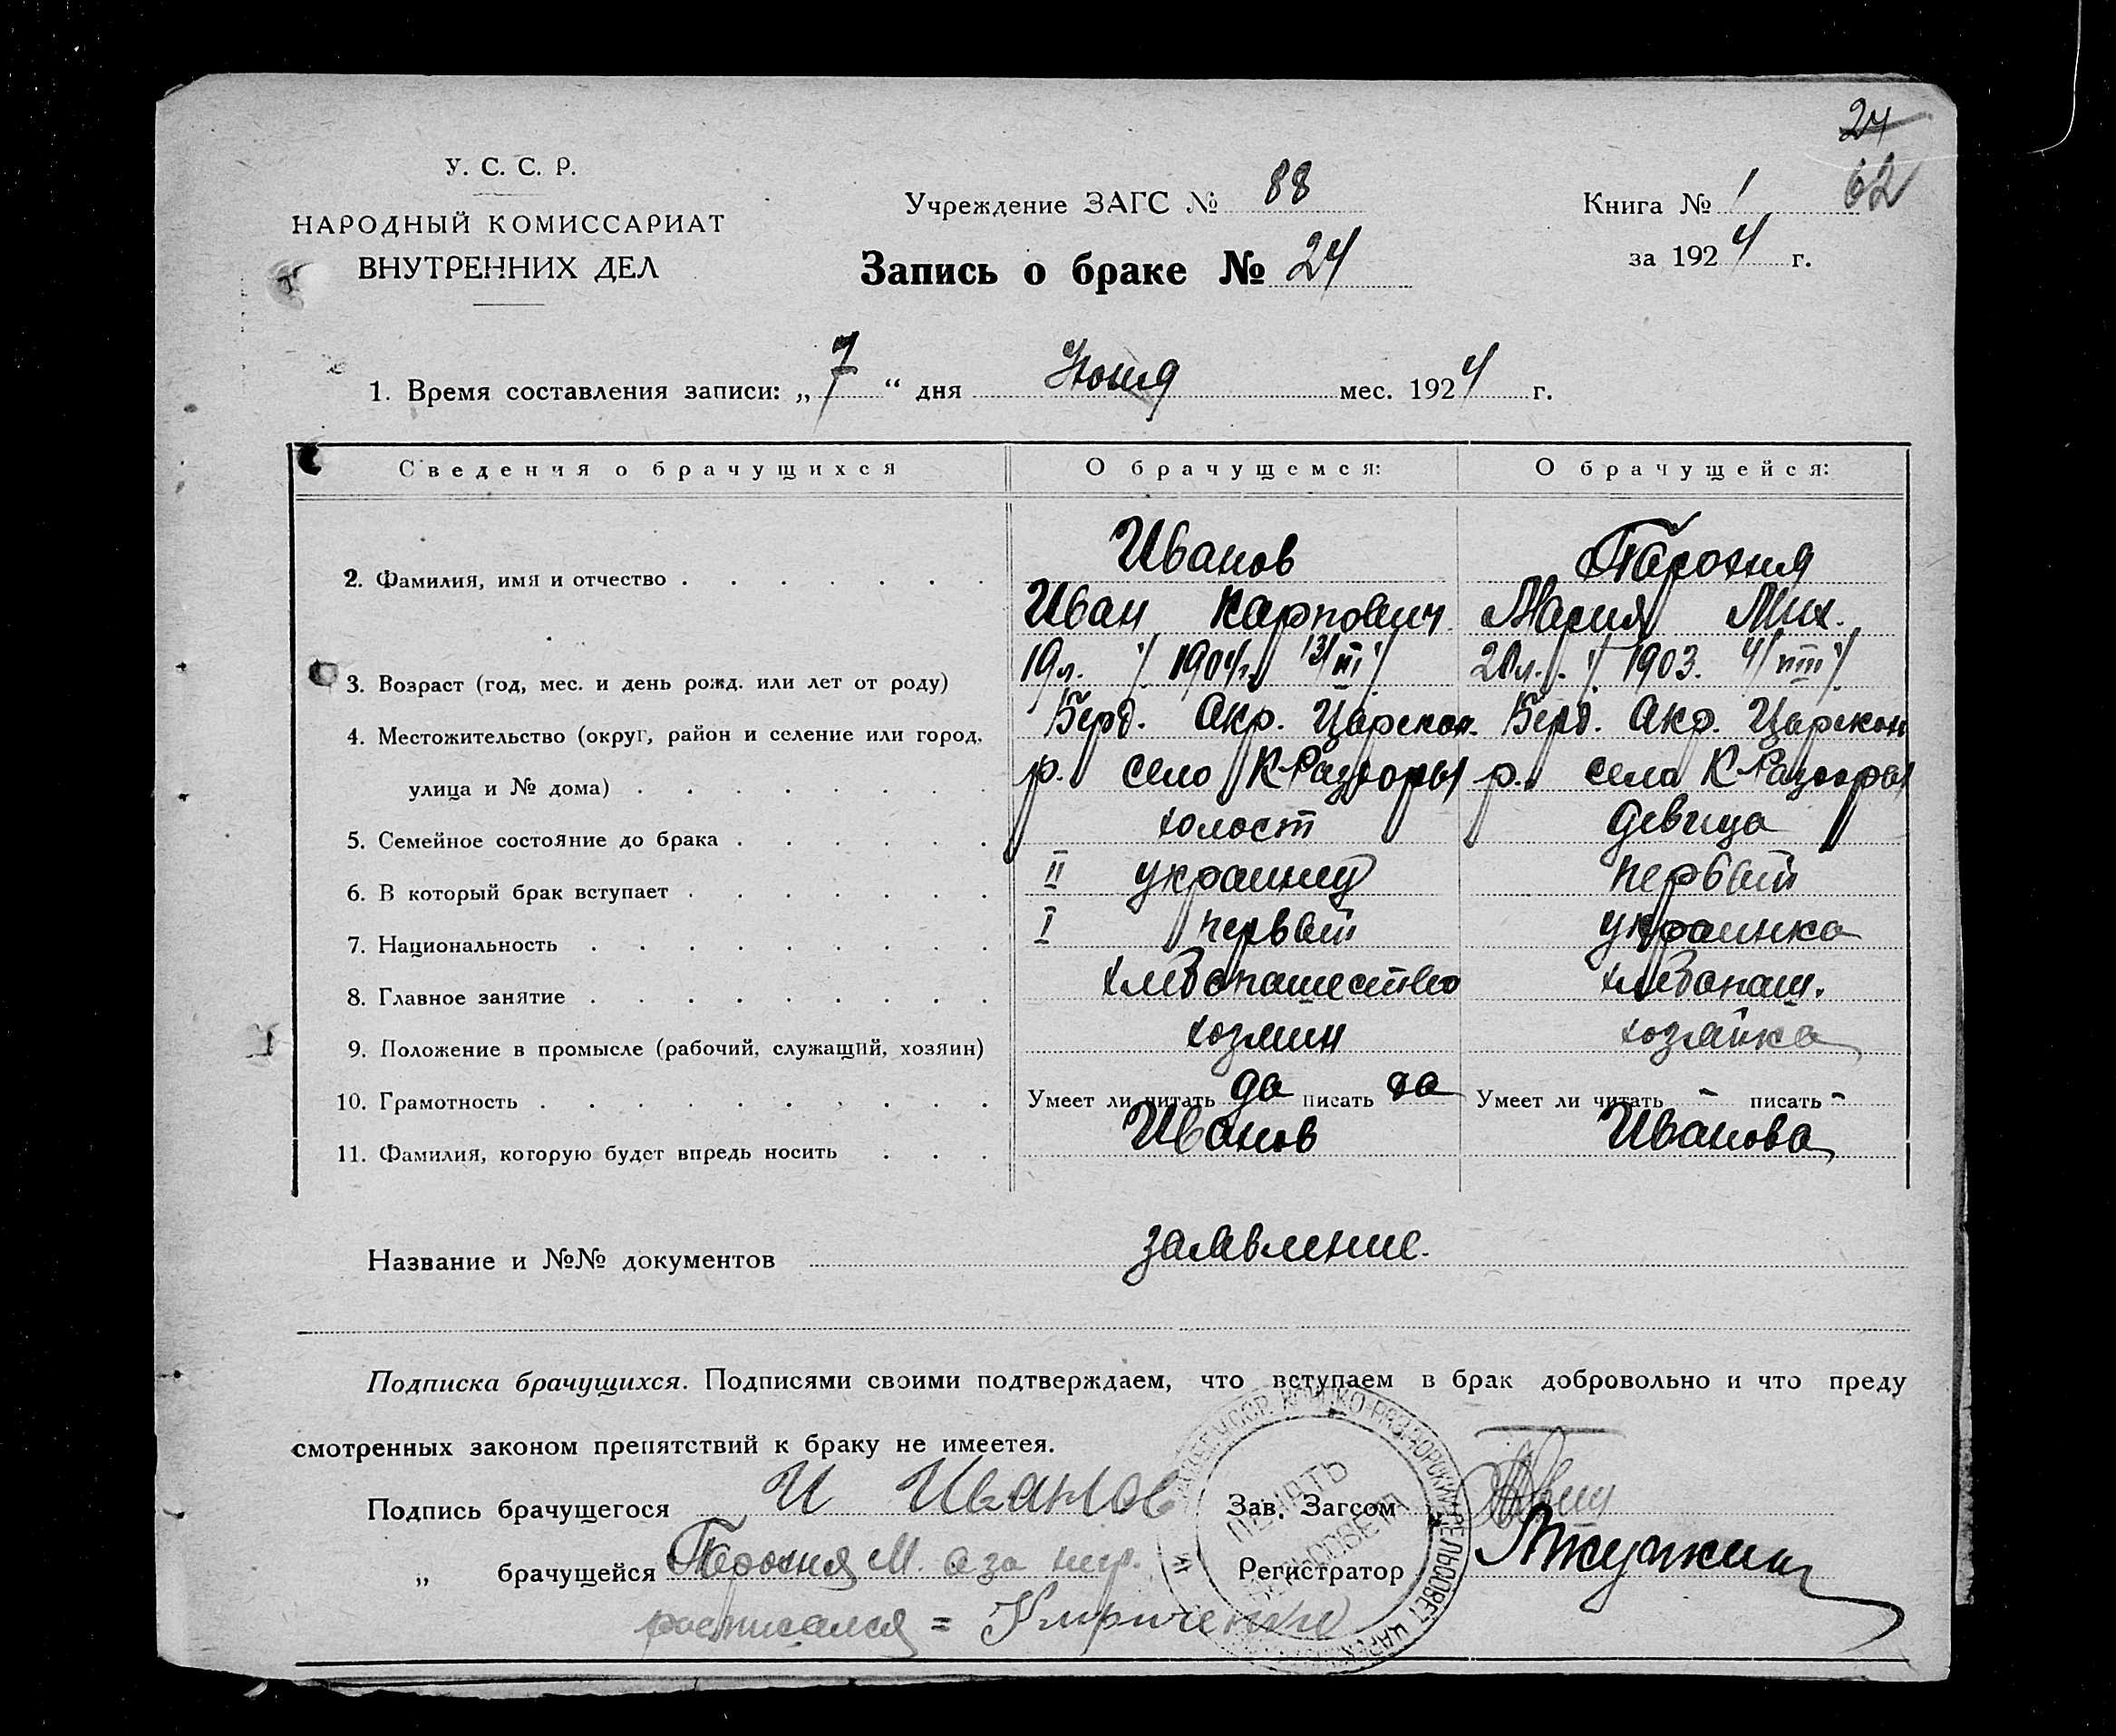 24
62
У. С. С. Р.
НАРОДНЫЙ КОМИССАРИАТ
ВНУТРЕННИХ ДЕЛ
Учреждение ЗАГС № 88
Запись о браке № 24
Книга № 1
за 1924 г.
1. Время составления записи: „7“ дня Июня мес. 1924 г.
Сведения о брачущихся О брачущемся: О брачущейся:
2. Фамилия, имя и отчество Иванов
Иван Карпович Мария Мих.
3. Возраст (год, мес. и день рожд. или лет от роду) 19л. 1904г. 1903.
4. Местожительство (округ, район и селение или город, Берд. Окр. Царекон. Берд. Окр. Царекон
улица и № дома) р. село К Раздоры р. села К Раздоры
5. Семейное состояние до брака холост девица
6. В который брак вступает II украинец первый
7. Национальность I первый украинка
8. Главное занятие хлебопашество хлебопаш.
9. Положение в промысле (рабочий, служащий, хозяин) хозяин хозяйка
10. Грамотность Умеет ли читать да писать да Умеет ли читать - писать -
11. Фамилия, которую будет впредь носить Иванов Иванова
Название и №№ документов заявление.
Подписка брачущихся. Подписями своими подтверждаем, что вступаем в брак добровольно и что преду
смотренных законом препятствий к браку не имеетея.
Подпись брачущегося И Иванов Зав. Загсом
„ брачущейся М. а за нер. Регистратор
расписался = Кириченко
ПЕЧАТЬ
СЕЛЬСОВЕТА